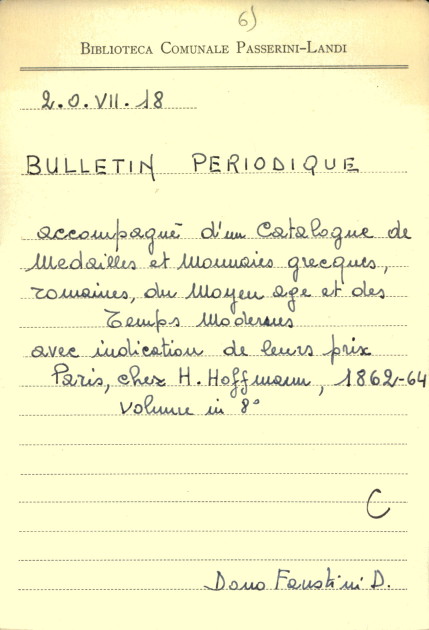 6)
BIBLIOTECA COMUNALE PASSERINI-LANDI
2.O.VII.18
BULLETIN PERIODIQUE
accompagné d'un Catalogue de
Medailles et Monnaies grecques,
romaines, du Moyen age et des
Temps Modernes
avec indication de leurs prix
Paris, chez H. Hoffmann, 1862-64
Volume in 8°
C
Dono Faustini D.